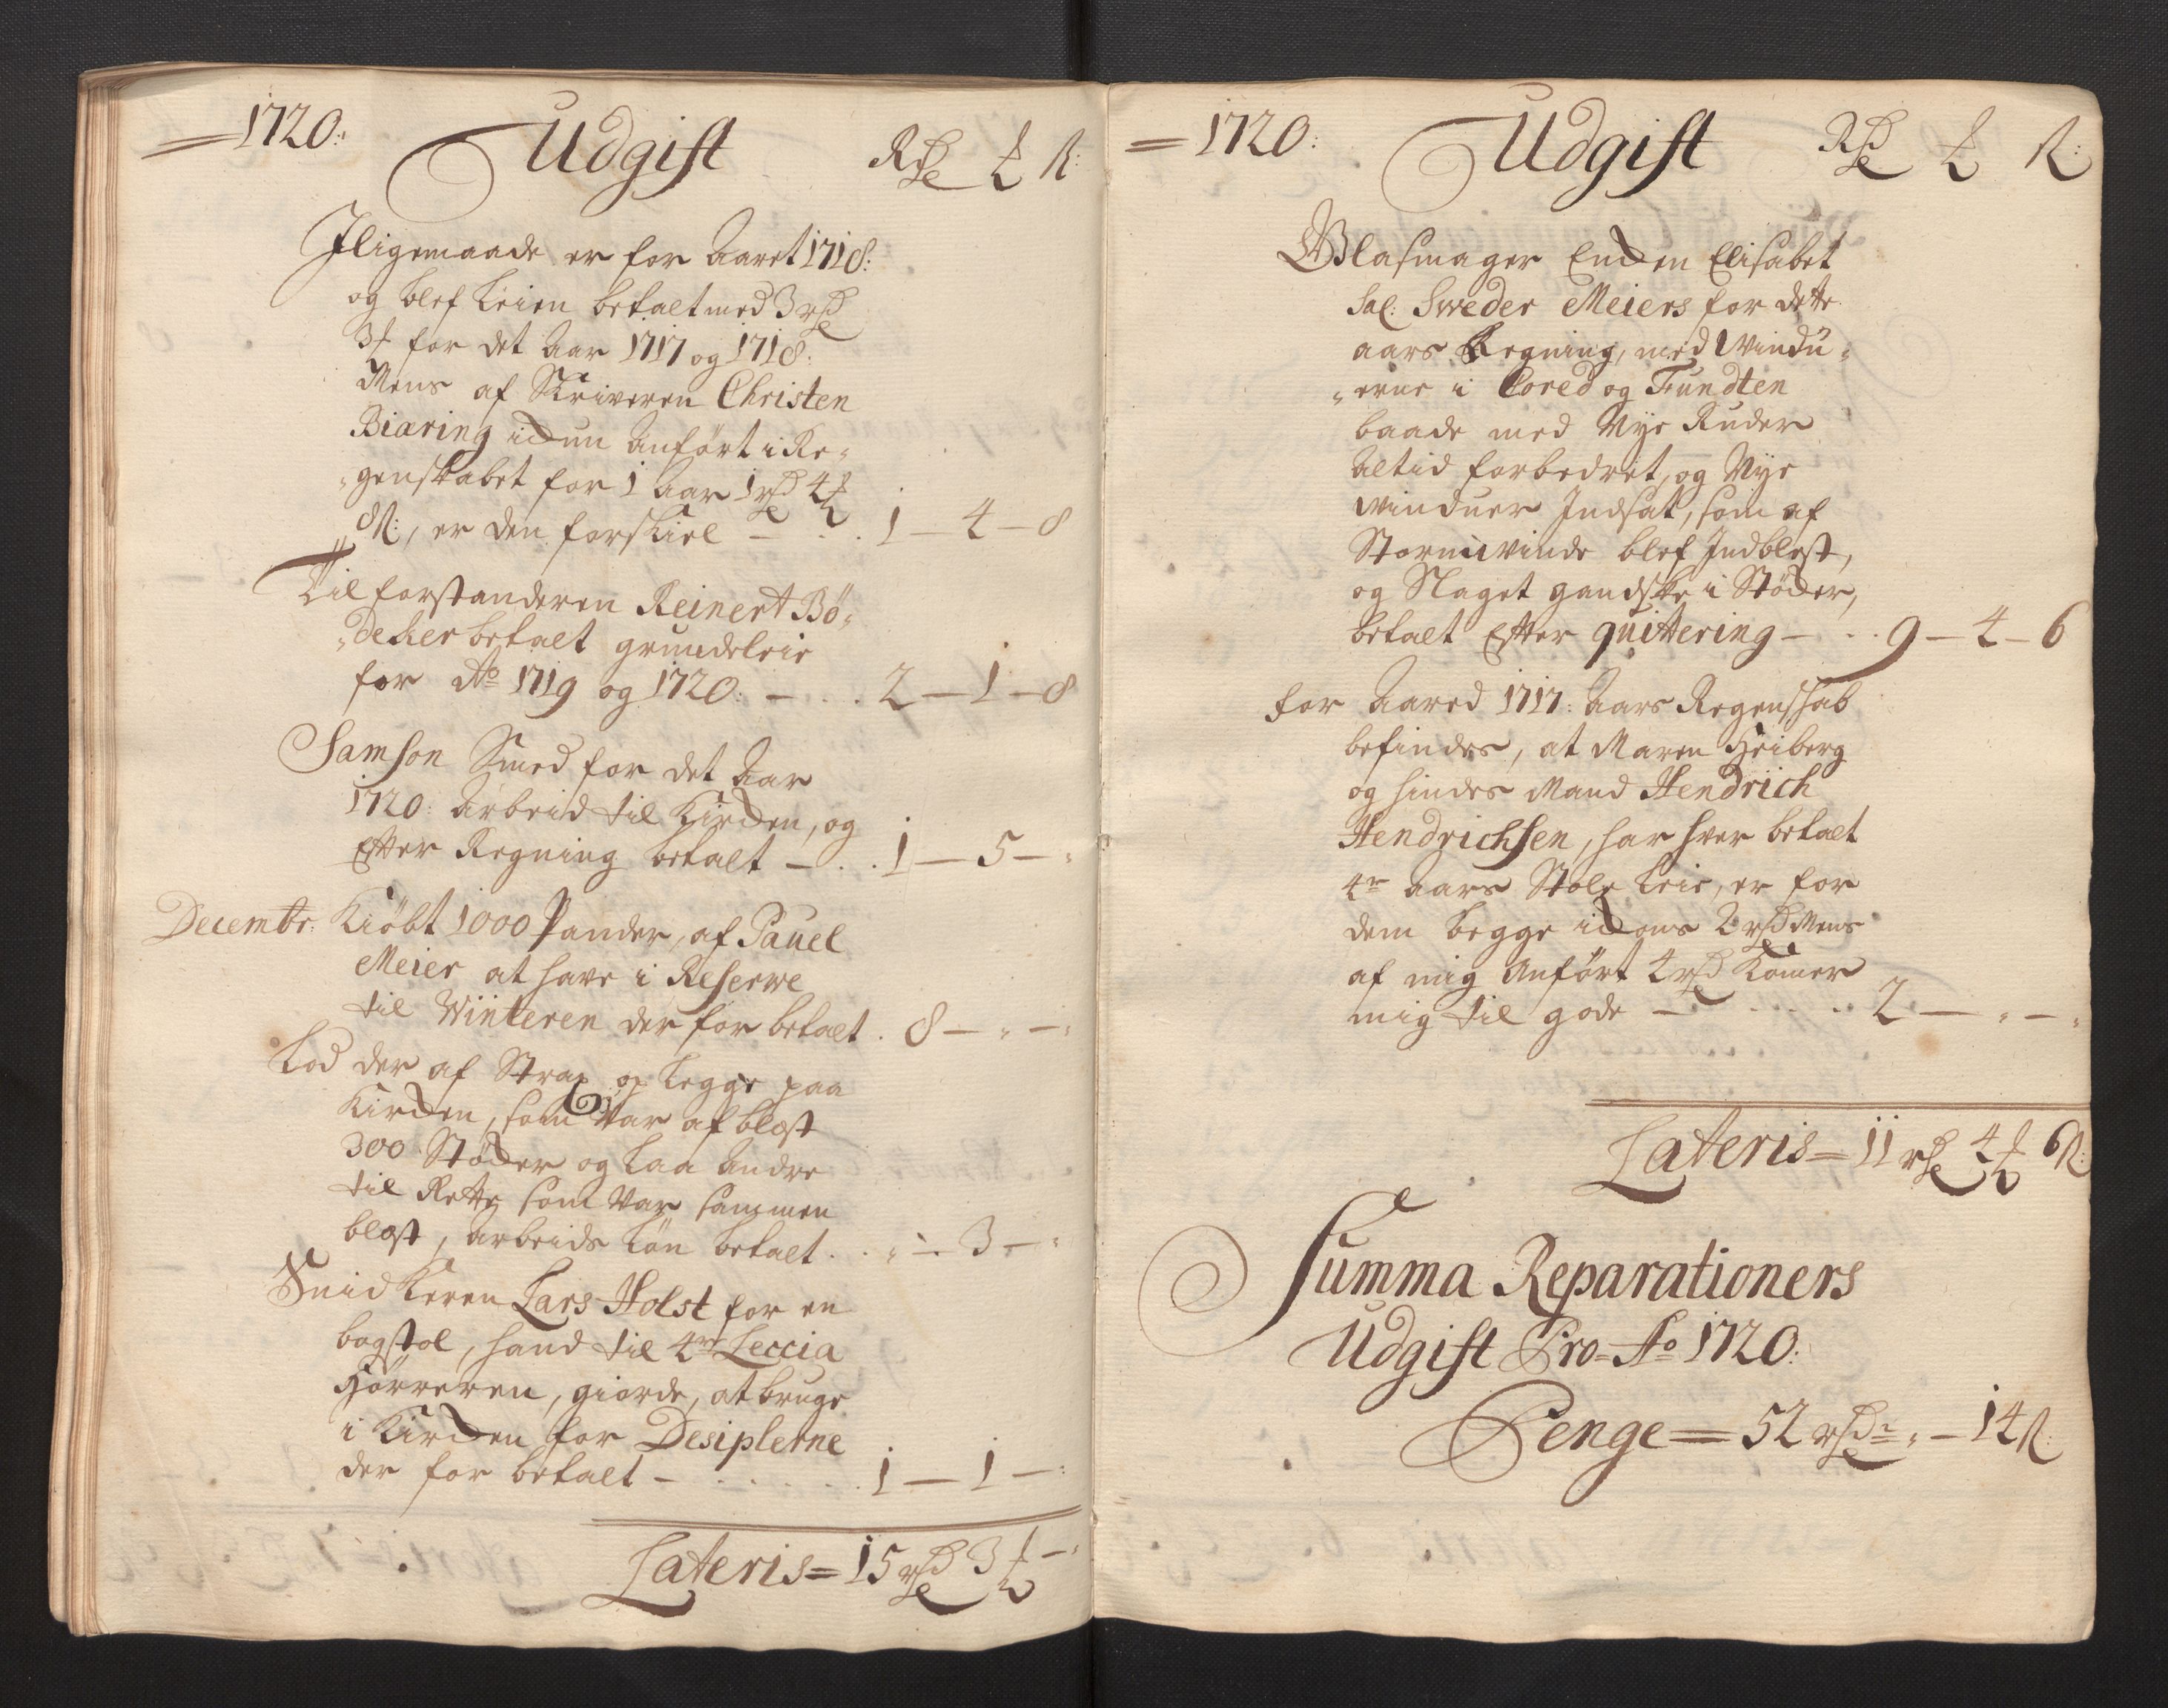 1720: Udgift Rdr ß
Iligemaade er for Aaret 1718:
og blef leien betalt med 3 rdr
3 for det Aar 1717 og 1718:
Mens af Skriveren Christen
Biaring ickun anført i Re-
-genskabet for 1 Aar 1 rdr 4
8 ß:, er den forskiel - 1 - 4 - 8
Til forstanderen Reinert Bö-
-deker betalt grundeleie
for Ao 1719 og 1720: - 2 - 1 - 8
Samson Smed for det Aar
1720: Arbeid til Kircken, og
Efter Regning betalt - 1 - 5 -
Decembr: Kiöbt 1000 Pander, af Pauel
Meier at have i Reserve
til Winteren der for betalt. 8 - " - "
Lod der af Strax op legge paa
Kircken, som var af blæst
300 Stöcker og laa Andre
til Rette som var sammen
blæst, Arbeids lön betalt. " - 3 - "
Snidkeren Lars Holst for en
bogstol, hand til 4de Leccia
Hörreren, giorde, at bruge
i Kircken for Desiplerne
der for betalt - 1 - 1 - "
Lateris = 15 rdr 3 - "
1720: Udgift Rdr ß
Glasmager Encken Elisabet
Sal: Sweder Meiers for dette
aars Regning, med Windu-
-erne i Cored og Fundten
baade med Nye Ruder
altid forbedret, og Nye
Winduer Indsat, som af
Stormwinde blef Indblæst,
og Slaget gandske i Stöcker,
betalt Efter quittering - 9 - 4 - 6
for Aared 1717: Aars Regenskab
befindes, at Maren Heiberg
og hindes Mand Hendrich
Hendrichsen, har hver betalt
4re aars Stole leie, er for
dem begge ickons 2 rdr Mens
af mig Anfört 4 rdr Komer
mig til gode - 2 - " - "
Lateris = 11 rdr 4 6 ß:
Summa Reparationers
Udgift Pro Ao 1720:
Penge = 52 rdr " - 14 ß: